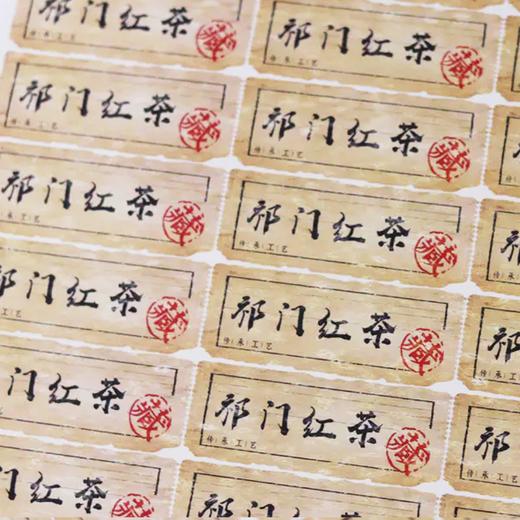 祁门红茶 藏
传承工艺
祁门红茶 藏
传承工艺
祁门红茶 藏
传承工艺
祁门红茶 藏
传承工艺
祁门红茶 藏
传承工艺
祁门红茶 藏
传承工艺
祁
门红茶 藏
祁门红茶 藏
传承工艺
祁
门红茶 藏
祁门红茶 藏
传承工艺
祁
门红茶